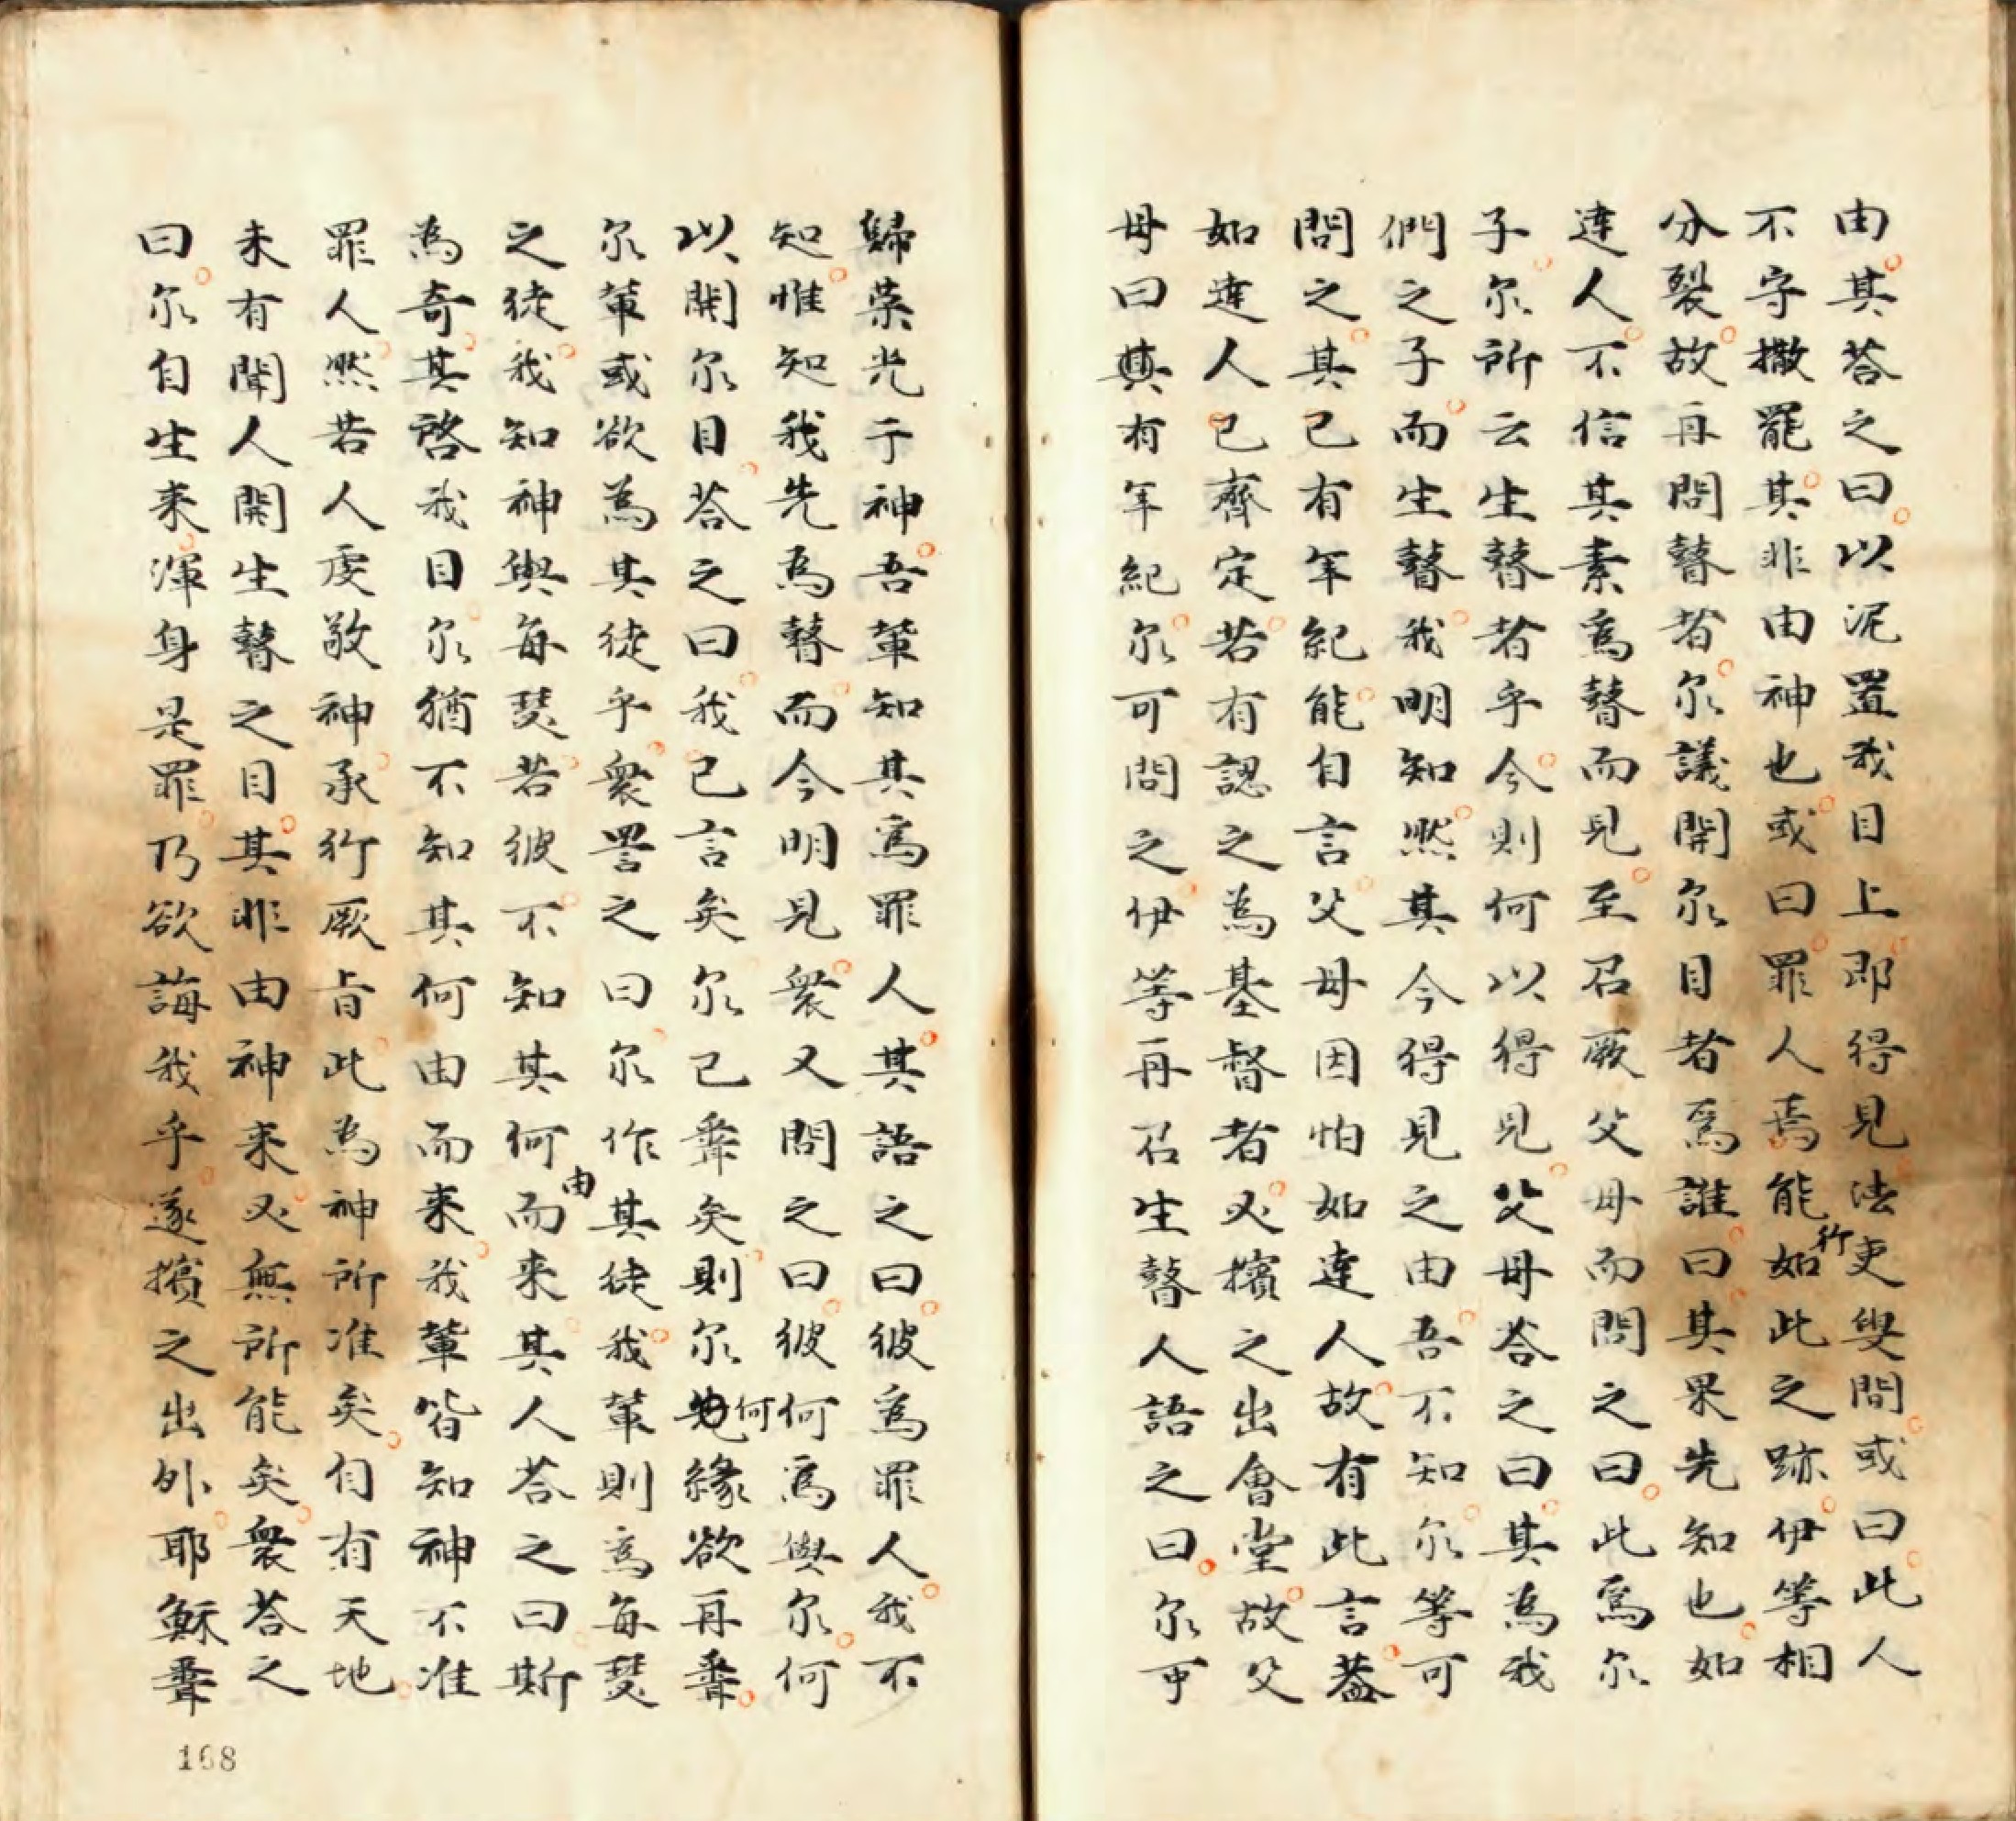 由其荅之曰以泥置我目上即得見法吏叟問或曰此人
不守撒罷其非由神也或曰罪人焉能行如此之跡伊等相
分裂故再問瞽者尔議開尔目者爲誰曰其果先知也如
達人不信其素爲瞽而見至召厥父母而問之曰此爲尔
子尔所云生瞽者乎今則何以得見父母荅之曰其為我
們之子而生瞽我明知然其今得見之由吾不知尔等可
問之其已有年紀能自言父母因怕如達人故有此言葢
如達人已齊定若有認之為基督者必擯之出會堂故父
母曰其有年紀尔可問之伊等再召生瞽人語之曰尔可
歸荣光于神吾軰知其爲罪人其語之曰彼爲罪人我不
知惟知我先爲瞽而今明見衆又問之曰彼何爲與尔何
以開尔目荅之曰我已言矣尔已聽矣則尔何緣欲再聽
尔軰或欲為其徒乎衆詈之曰尔作其徒我軰則爲每瑟
之徒我知神與每瑟若彼不知其何由而来其人荅之曰斯
為奇其啓我目尔猶不知其何由而来我軰皆知神不准
罪人然若人虔敬神承行厥旨此為神所准矣自有天地
未有聞人開生瞽之目其非由神来必無所能矣衆荅之
曰尔自生来渾身是罪乃欲誨我乎遂擯之出外耶穌聽
168